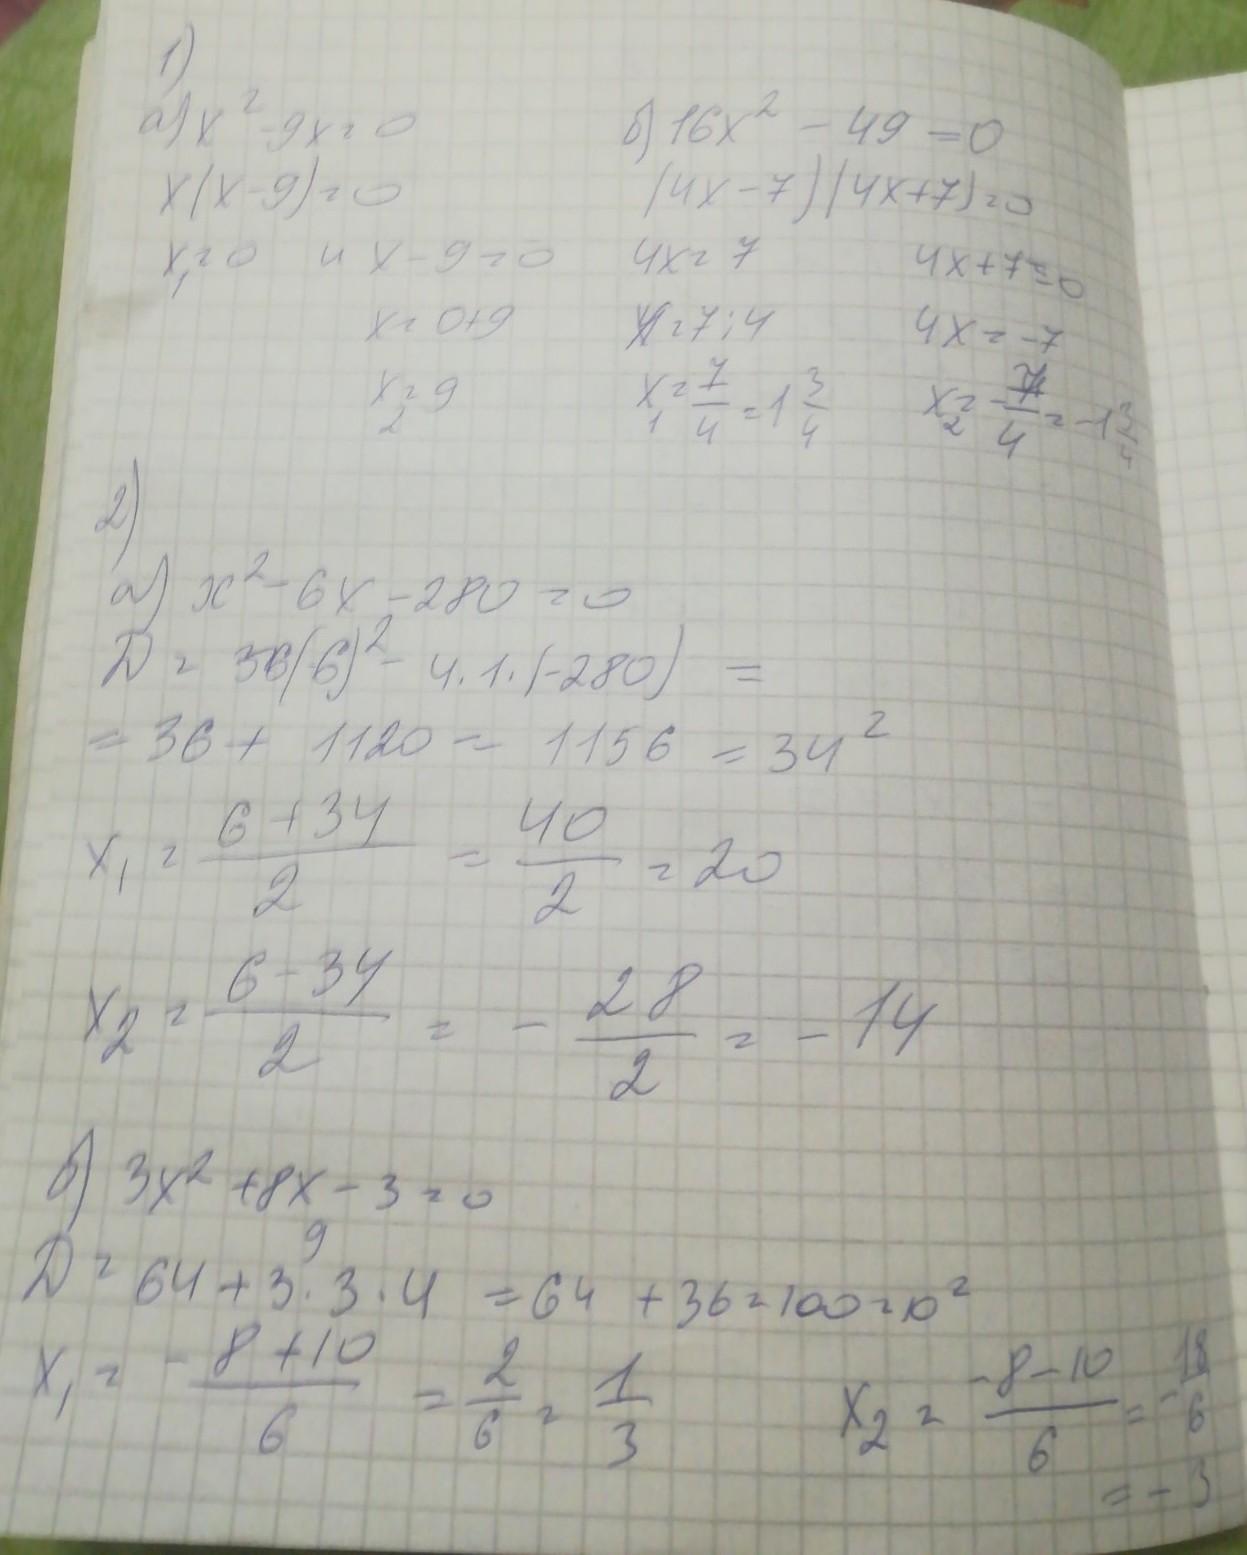 1)
а) x² - 9x = 0
x(x-9) = 0
x₁ = 0 и x - 9 = 0
x = 0+9
x₂ = 9
б) 16x² - 49 = 0
(4x-7)(4x+7) = 0
4x = 7 4x+7 = 0
x = 7:4 4x = -7
x₁ = 7/4 = 1 3/4 x₂ = -7/4 = -1 3/4
2)
а) x² - 6x - 280 = 0
D = 36(-6)² - 4·1·(-280) =
= 36 + 1120 = 1156 = 34²
x₁ = (6+34)/2 = 40/2 = 20
x₂ = (6-34)/2 = -28/2 = -14
б) 3x² + 8x - 3 = 0
9
D = 64 + 3·3·4 = 64 + 36 = 100 = 10²
x₁ = -(8+10)/6 = 2/6 = 1/3 x₂ = (-8-10)/6 = -18/6
= -3